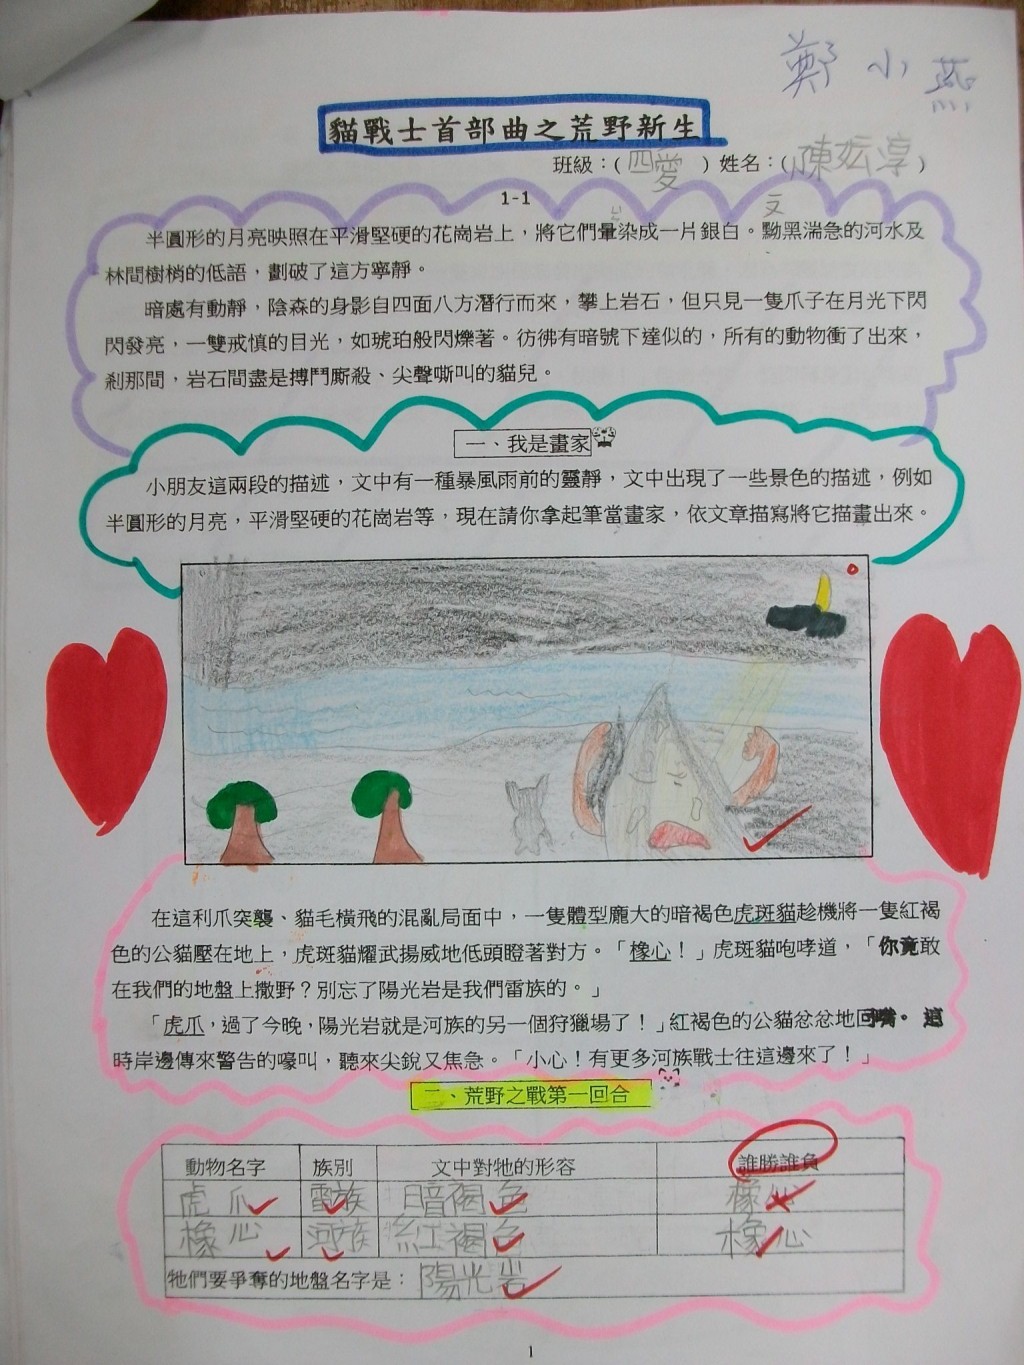 鄭小燕
貓戰士首部曲之荒野新生
班級：(四愛) 姓名：(陳妘淳)
1-1
半圓形的月亮映照在平滑堅硬的花崗岩上，將它們暈染成一片銀白。黝黑湍急的河水及
林間樹梢的低語，劃破了這方寧靜。
暗處有動靜，陰森的身影自四面八方潛行而來，攀上岩石，但只見一隻爪子在月光下閃
閃發亮，一雙戒慎的目光，如琥珀般閃爍著。彷彿有暗號下達似的，所有的動物衝了出來，
剎那間，岩石間盡是搏鬥廝殺、尖聲嘶叫的貓兒。
一、我是畫家
小朋友這兩段的描述，文中有一種暴風雨前的靈靜，文中出現了一些景色的描述，例如
半圓形的月亮，平滑堅硬的花崗岩等，現在請你拿起筆當畫家，依文章描寫將它描畫出來。
在這利爪突襲、貓毛橫飛的混亂局面中，一隻體型龐大的暗褐色虎斑貓趁機將一隻紅褐
色的公貓壓在地上，虎斑貓耀武揚威地低頭瞪著對方。「橡心！」虎斑貓咆哮道，「你竟敢
在我們的地盤上撒野？別忘了陽光岩是我們雷族的。」
「虎爪，過了今晚，陽光岩就是河族的另一個狩獵場了！」紅褐色的公貓忿忿地回嘴。這
時岸邊傳來警告的嚎叫，聽來尖銳又焦急。「小心！有更多河族戰士往這邊來了！」
二、荒野之戰第一回合
動物名字 族別 文中對牠的形容 誰勝誰負
虎爪 雷族 暗褐色 橡心
橡心 河族 紅褐色 橡心
牠們要爭奪的地盤名字是：陽光岩
1